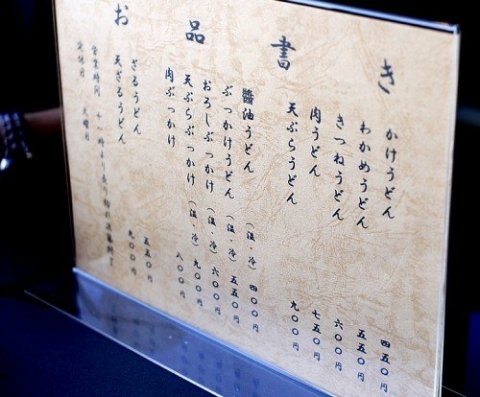 お品書き
かけうどん 四五〇円
わかめうどん 五五〇円
きつねうどん 六〇〇円
肉うどん 七五〇円
天ぷらうどん 九〇〇円
醤油うどん（温・冷） 四〇〇円
ぶっかけうどん（温・冷） 五五〇円
おろしぶっかけ（温・冷） 六〇〇円
天ぷらぶっかけ（温・冷） 九〇〇円
肉ぶっかけ 八〇〇円
ざるうどん 五五〇円
天ざるうどん 九〇〇円
営業時間 十一時
定休日 火曜日